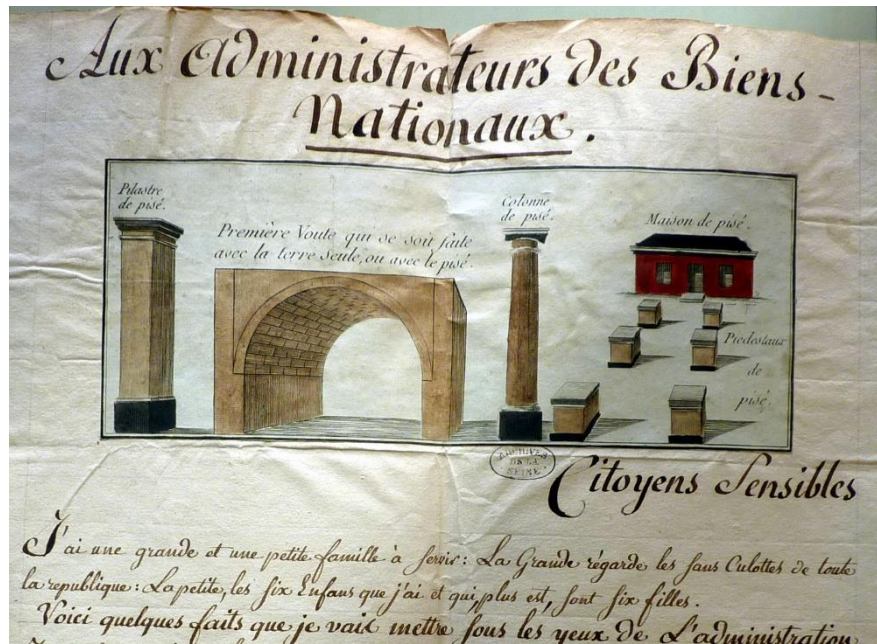 Aux Administrateurs des Biens-
Nationaux.
Pilastre
de pisé.
Première Voute qui se soit faite
avec la terre seule, ou avec le pisé.
Colonne
de pisé.
Maison de pisé.
Piedestaux
de
pisé.
ARCHIVES
DE LA
SEINE
Citoyens Sensibles
J'ai une grande et une petite famille à servir: La Grande régarde les sans Culottes de toute
la republique: La petite, les six Enfans que j'ai et qui, plus est, sont six filles.
Voici quelques faits que je vais mettre sous les yeux de L'administration